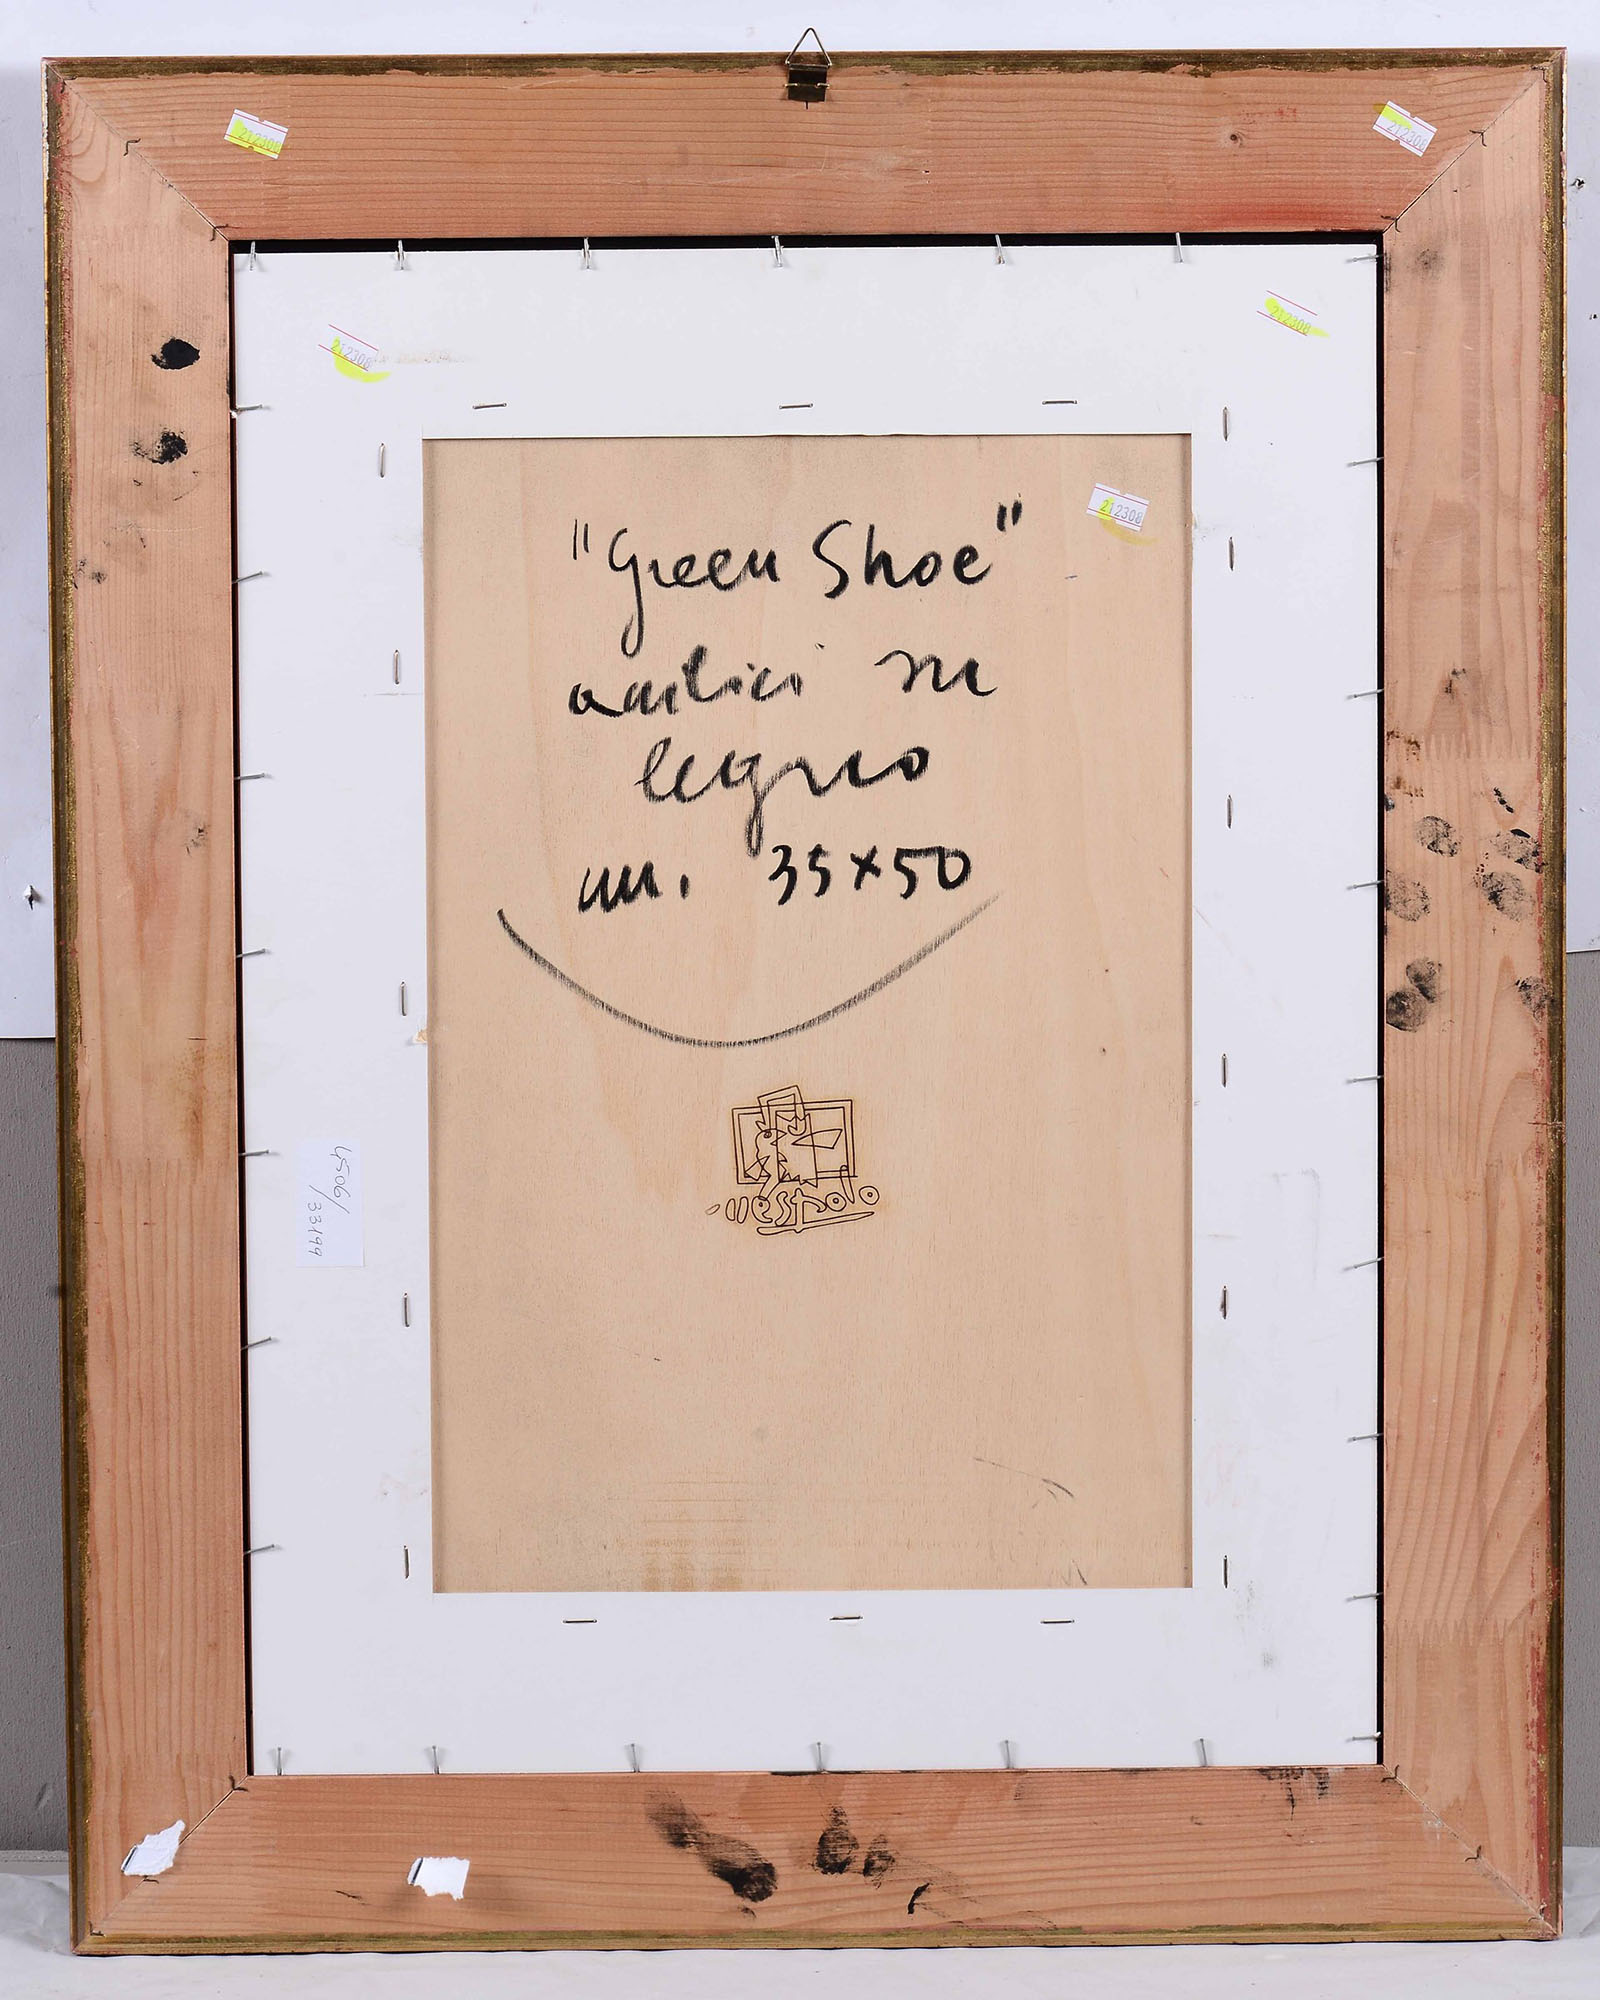 212308
212308
212308
212308
212308
"Green Shoe"
acrilici su
legno
cm. 35x50
nespolo
4506/
33199